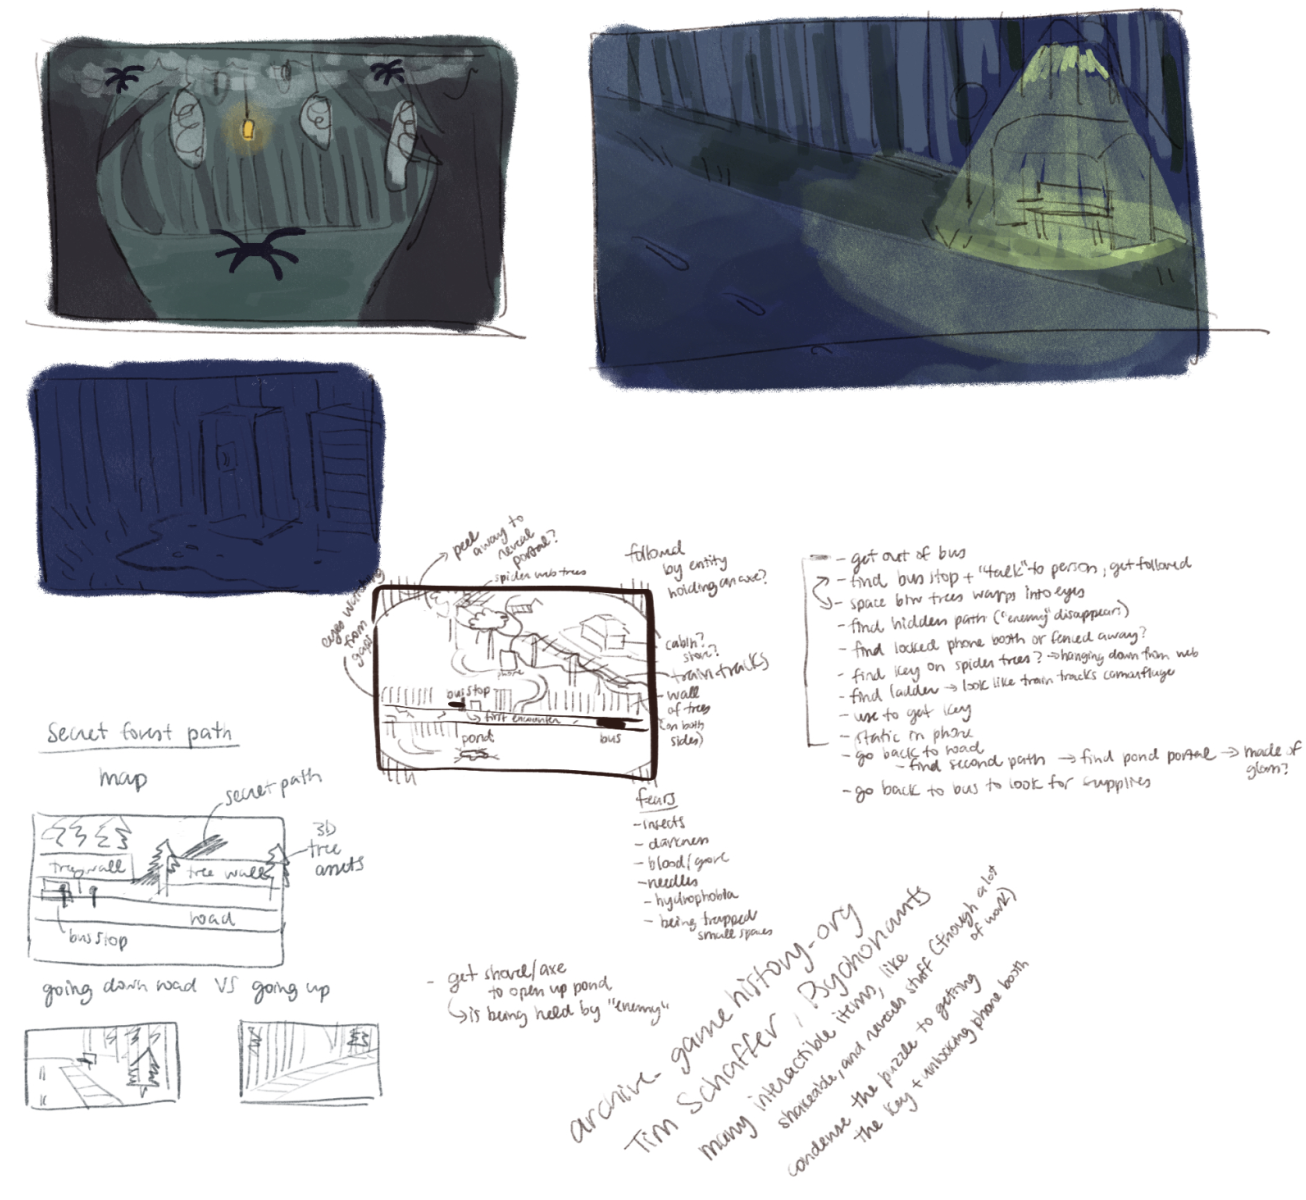 peel
away to
reveal
portal?
spider web trees
eyes watching
from
gaps
followed
by entity
holding an axe?
cabin?
store?
train tracks
wall
of trees
(on both
sides)
phone
bus stop
first encounter
pond
bus
- get out of bus
- find bus stop + "talk" to person, get followed
- space btw trees warps into eyes
- find hidden path ("enemy" disappears)
- find locked phone booth or fenced away?
- find key on spider trees? → hanging down from web
- find ladder → look like train tracks camouflage
- use to get key
- static in phone
- go back to road
- find second path → find pond portal → made of
glass?
- go back to bus to look for supplies
secret forest path
map
secret path
3D
tree
assets
tree wall
tree wall
road
bus stop
going down road VS going up
fears
- insects
- darkness
- blood/gore
- needles
- hydrophobia
- being trapped
small spaces
- get shovel/axe
to open up pond
↳ is being held by "enemy"
archive - game history - org
Tim Schaffer, Psychonauts
many interactible items, like
and reveals stuff (through a lot
of work)
condense the puzzle to getting
the key + unlocking phone booth